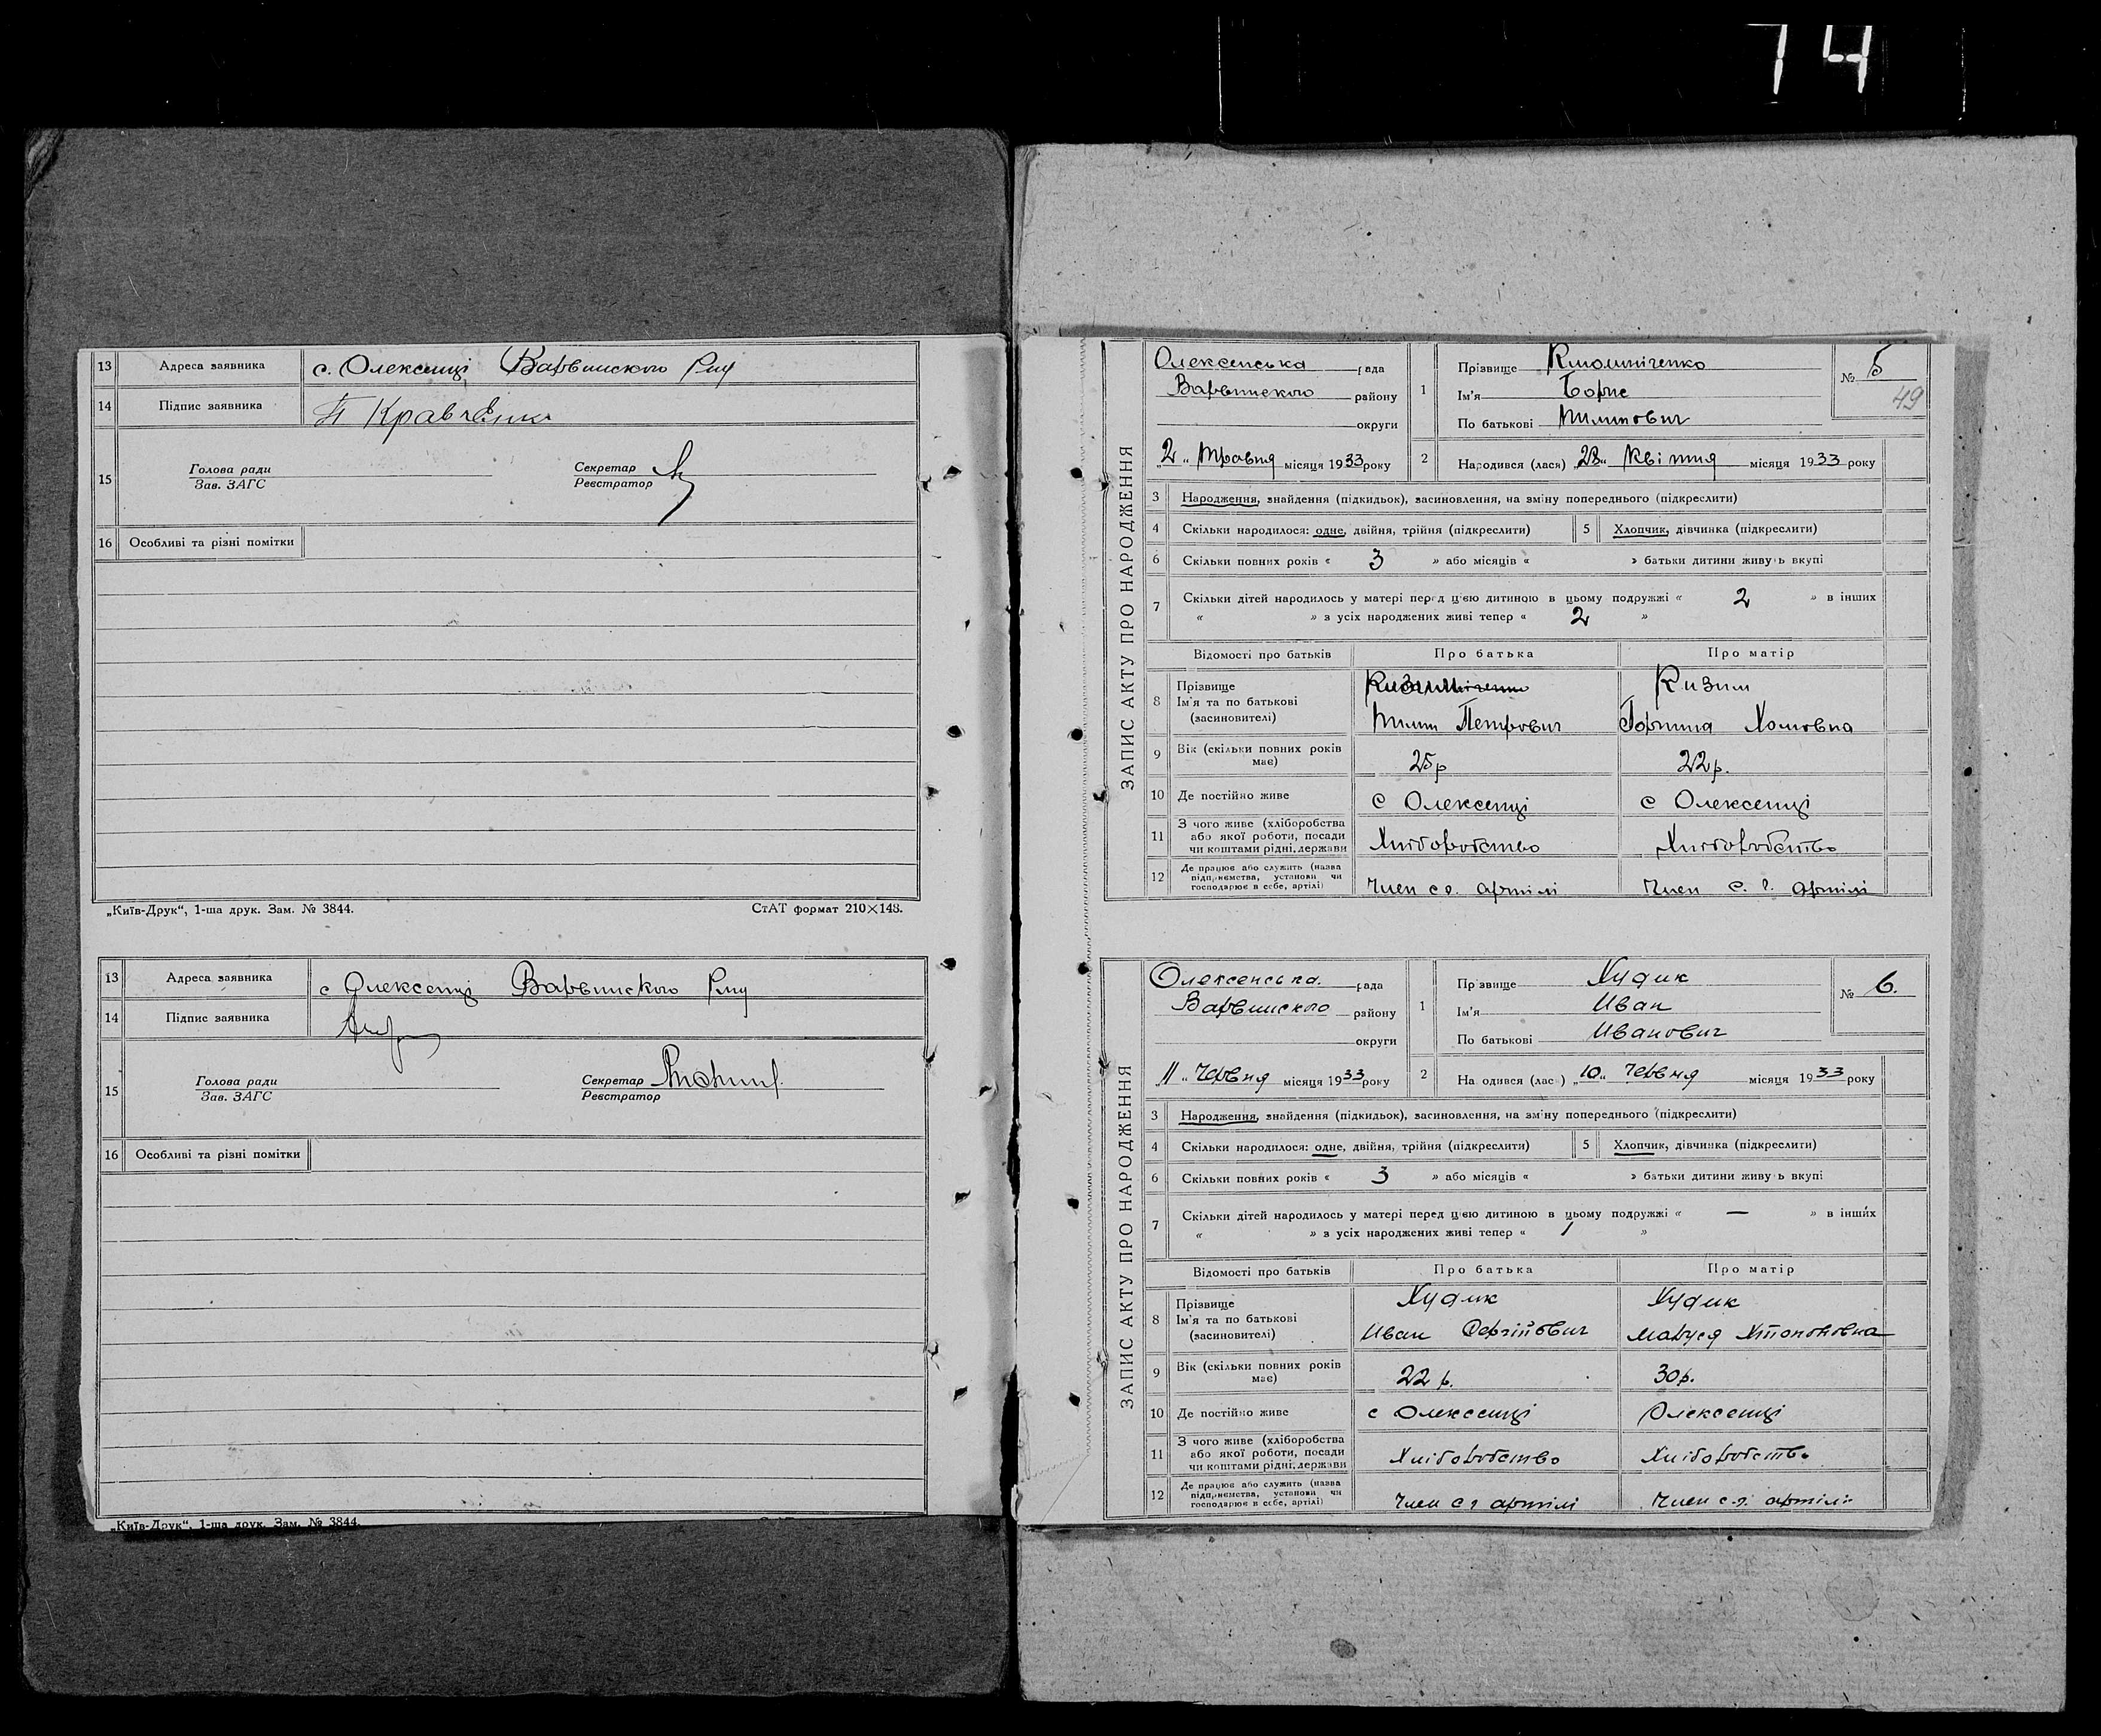 74
13 Адреса заявника с. Олексинці Варвинского Р-ну
14 Підпис заявника П Кравченко
15 Голова ради Секретар
Зав. ЗАГС Реєстратор
16 Особливі та різні помітки
„Київ-Друк“, 1-ша друк. Зам. № 3844. СтАТ формат 210×148.
13 Адреса заявника с Олексенці Варвинского Р-ну
14 Підпис заявника
15 Голова ради Секретар
Зав. ЗАГС Реєстратор
16 Особливі та різні помітки
„Київ-Друк“, 1-ша друк. Зам. № 3844.
ЗАПИС АКТУ ПРО НАРОДЖЕННЯ
Олексенська рада
Варвинского району
округи
„2„ Травня місяця 1933 року
1 Прізвище
Ім'я Борис
По батькові
№ 5
49
2 Народився (лася) „23„ Квітня місяця 1933 року
3 Народження, знайдення (підкидьок), засиновлення, на зміну попереднього (підкреслити)
4 Скільки народилося: одне, двійня, трійня (підкреслити) 5 Хлопчик, дівчинка (підкреслити)
6 Скільки повних років « 3 » або місяців « » батьки дитини живуть вкупі
7 Скільки дітей народилось у матері перед цією дитиною в цьому подружжі « 2 » в інших
« » з усіх народжених живі тепер « 2 »
Відомості про батьків Про батька Про матір
8 Прізвище Кизим
Ім'я та по батькові Петрович Хомовна
(засиновителі)
9 Вік (скільки повних років має) 25р 22р.
10 Де постійно живе с Олексенці с Олексенці
11 З чого живе (хліборобства Хліборобство Хліборобство
або якої роботи, посади
чи коштами рідні, держави
12 Де працює або служить (назва Член с г. артілі Член с. г. артілі
підприємства, установи чи
господарює в себе, артілі)
ЗАПИС АКТУ ПРО НАРОДЖЕННЯ
Олексенська. рада
Варвинского району
округи
11„ Червня місяця 1933 року
1 Прізвище Худик
Ім'я Иван
По батькові Иванович
№ 6.
2 Народився (лася) „10„ Червня місяця 1933 року
3 Народження, знайдення (підкидьок), засиновлення, на зміну попереднього (підкреслити)
4 Скільки народилося: одне, двійня, трійня (підкреслити) 5 Хлопчик, дівчинка (підкреслити)
6 Скільки повних років « 3 » або місяців « » батьки дитини живуть вкупі
7 Скільки дітей народилось у матері перед цією дитиною в цьому подружжі « — » в інших
« » з усіх народжених живі тепер « 1 »
Відомості про батьків Про батька Про матір
8 Прізвище Худик Худик
Ім'я та по батькові Иван Сергійович Маруся
(засиновителі)
9 Вік (скільки повних років має) 22 р. 30р.
10 Де постійно живе с Олексенці Олексенці
11 З чого живе (хліборобства Хліборобство Хліборобство
або якої роботи, посади
чи коштами рідні, держави
12 Де працює або служить (назва Член с г артілі Член с.г. артілі
підприємства, установи чи
господарює в себе, артілі)